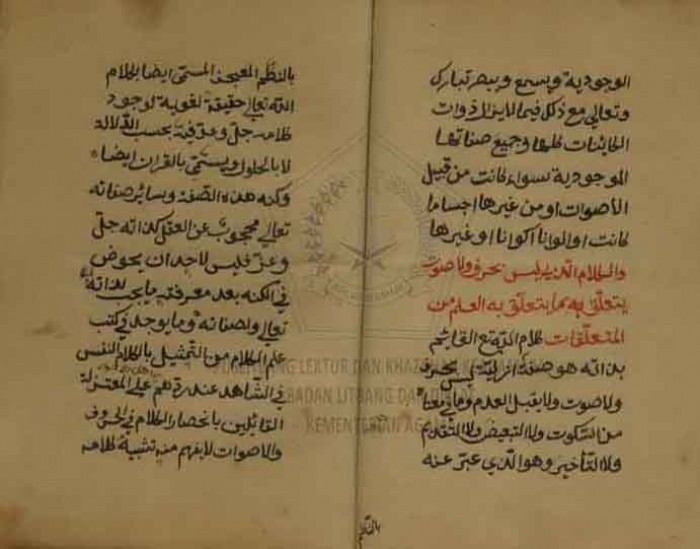 الوجودية ويسمع ويبصر تبارك
وتعالى مع ذلك فيما لايزال ذوات
الكائنات كلها وجميع صفاتها
الموجودية سواء كانت من قبيل
الأصوات او من غيرها اجساما
كانت او الوانا اكوانا او غيرها
والكلام الذي ليس بحرف ولا صوت
يتعلق به بما يتعلق به العلم من
المتعلقات كلام الله تع القائم
بذاته هو صفة ازلية ليس بحرف
ولا صوت ولا يقبل العدم وما في معناه
من السكوت ولا التبعيض ولا التقديم
ولا التأخير وهو الذي عبر عنه
بالنظم
بالنظم المعجز المسمى ايضا بكلام
الله تعالى حقيقة لغوية لوجود
كلامه جل وعز فيه بحسب الدلالة
لا بالحلول ويسمى بالقران ايضا
وكنه هذه الصفة وسائر صفاته
تعالى محجوب عن العقل كذاته جل
وعز فليس لاحد ان يخوض
في الكنه بعد معرفته ما يجب لذاته
تعالى ولصفاته وما يوجد في كتب
علم الكلام من التمثيل بالكلام النفسي
في الشاهد عند ردهم على المعتزلة
القائلين بانحصار الكلام في الحروف
والاصوات لا يفهم منه تشبيه كلامه
PUSLITBANG LEKTUR DAN KHAZANAH
BADAN LITBANG DAN
KEMENTERIAN AGAMA